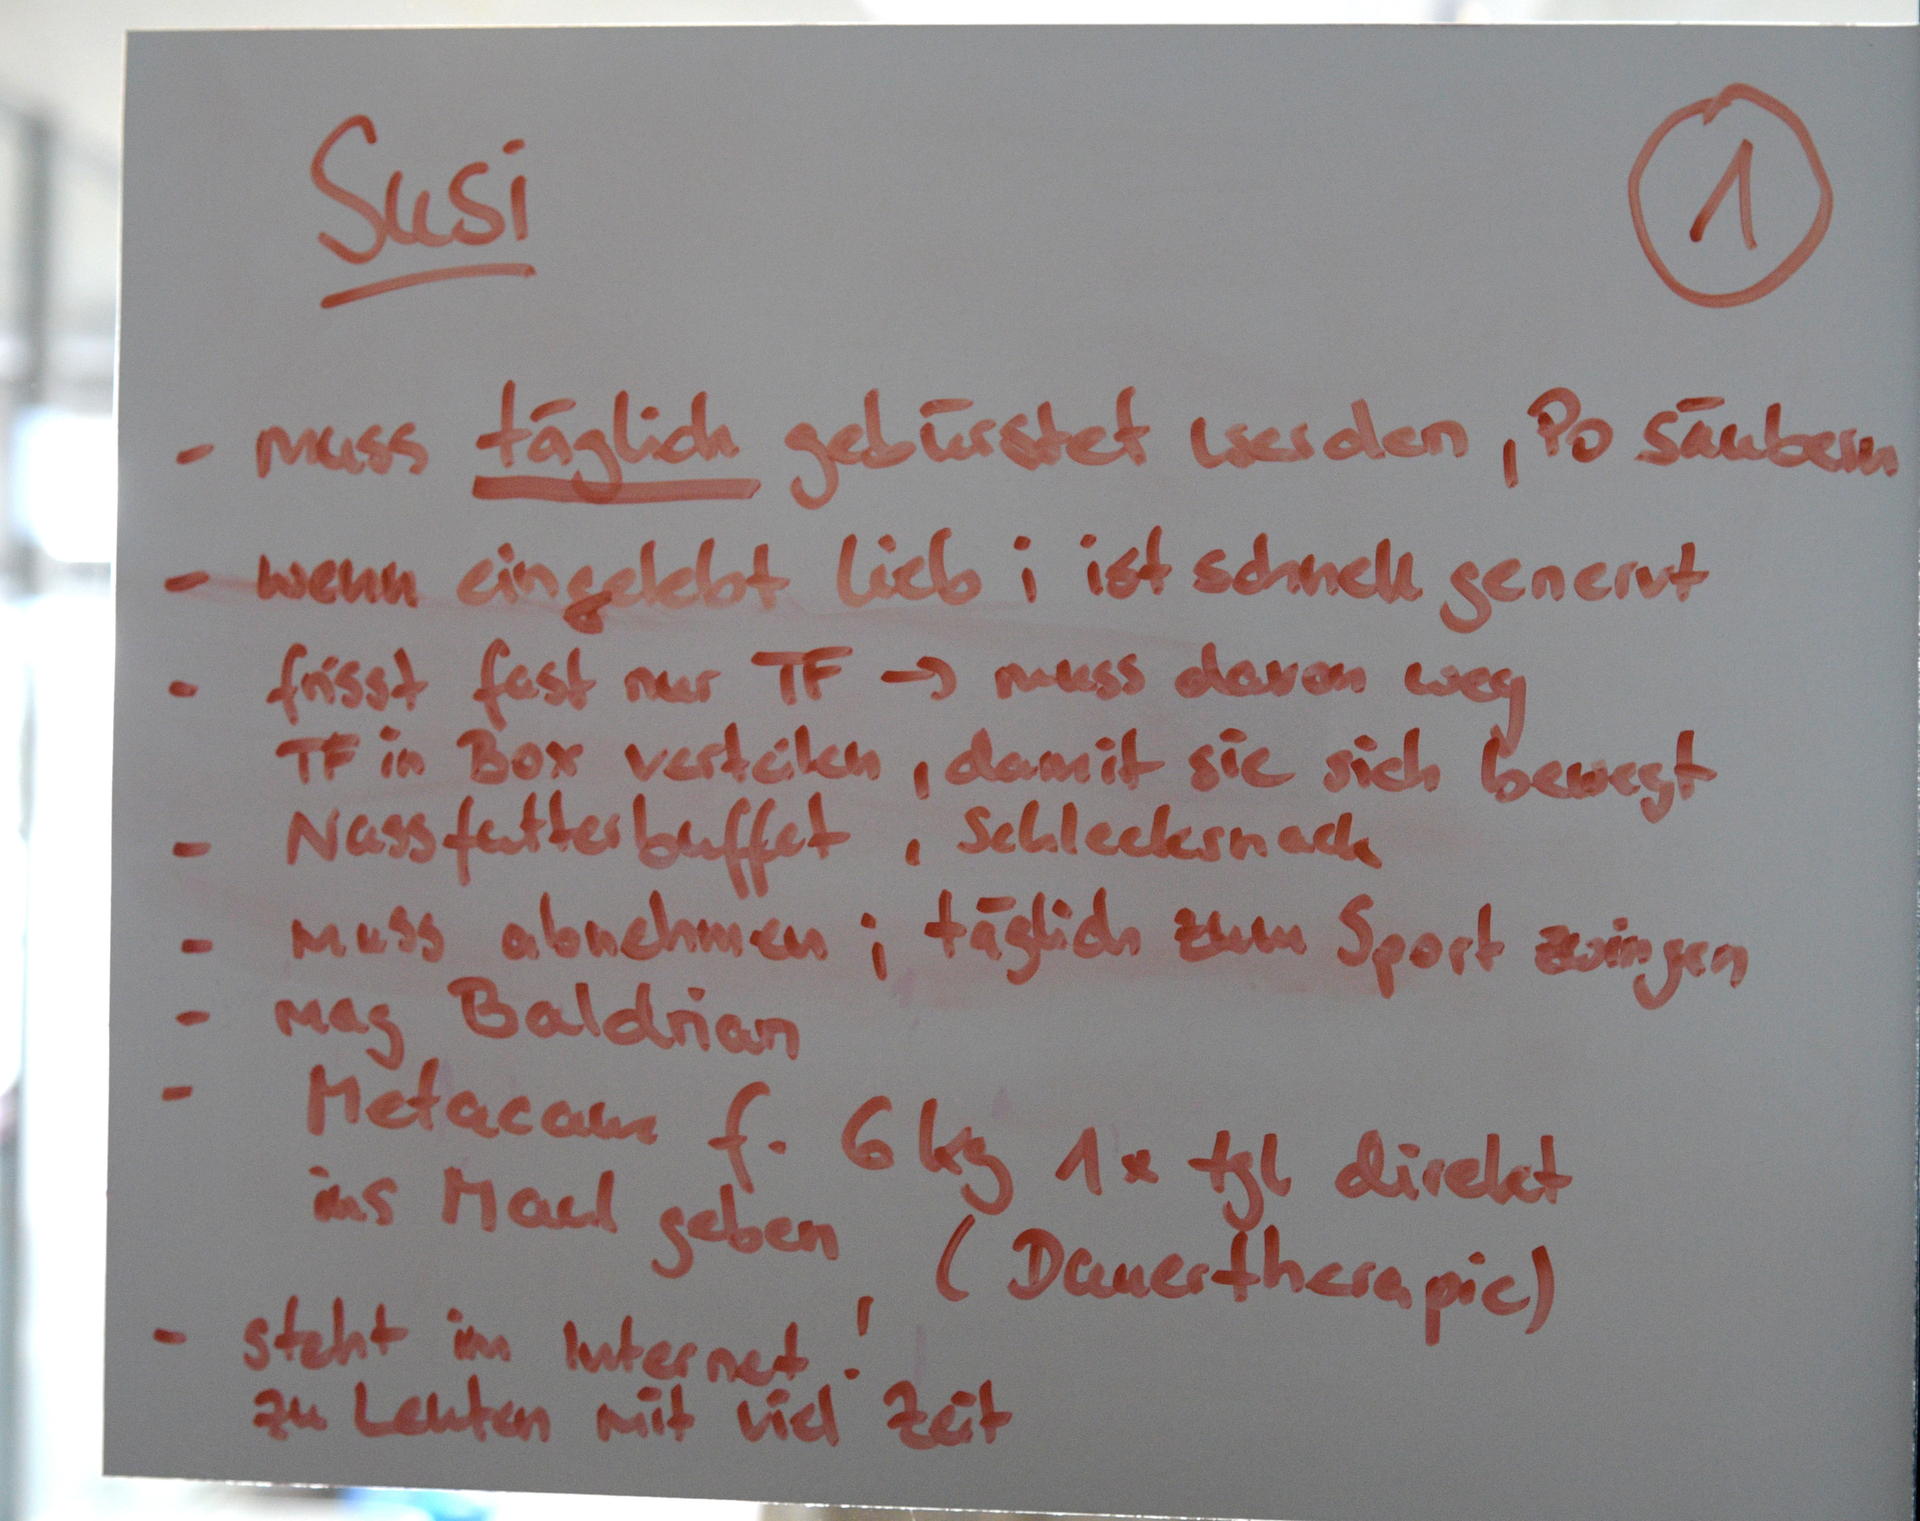 Susi
1
- muss täglich gebürstet werden, Po säubern
- wenn eingelebt lieb; ist schnell genervt
- frisst fast nur TF → muss davon weg
TF in Box verteilen, damit sie sich bewegt
- Nassfutterbuffet, Schlecksnack
- muss abnehmen; täglich zum Sport zwingen
- mag Baldrian
- Metacam f. 6 kg 1x tgl direkt
ins Maul geben (Dauertherapie)
- steht im Internet!
zu Leuten mit viel Zeit